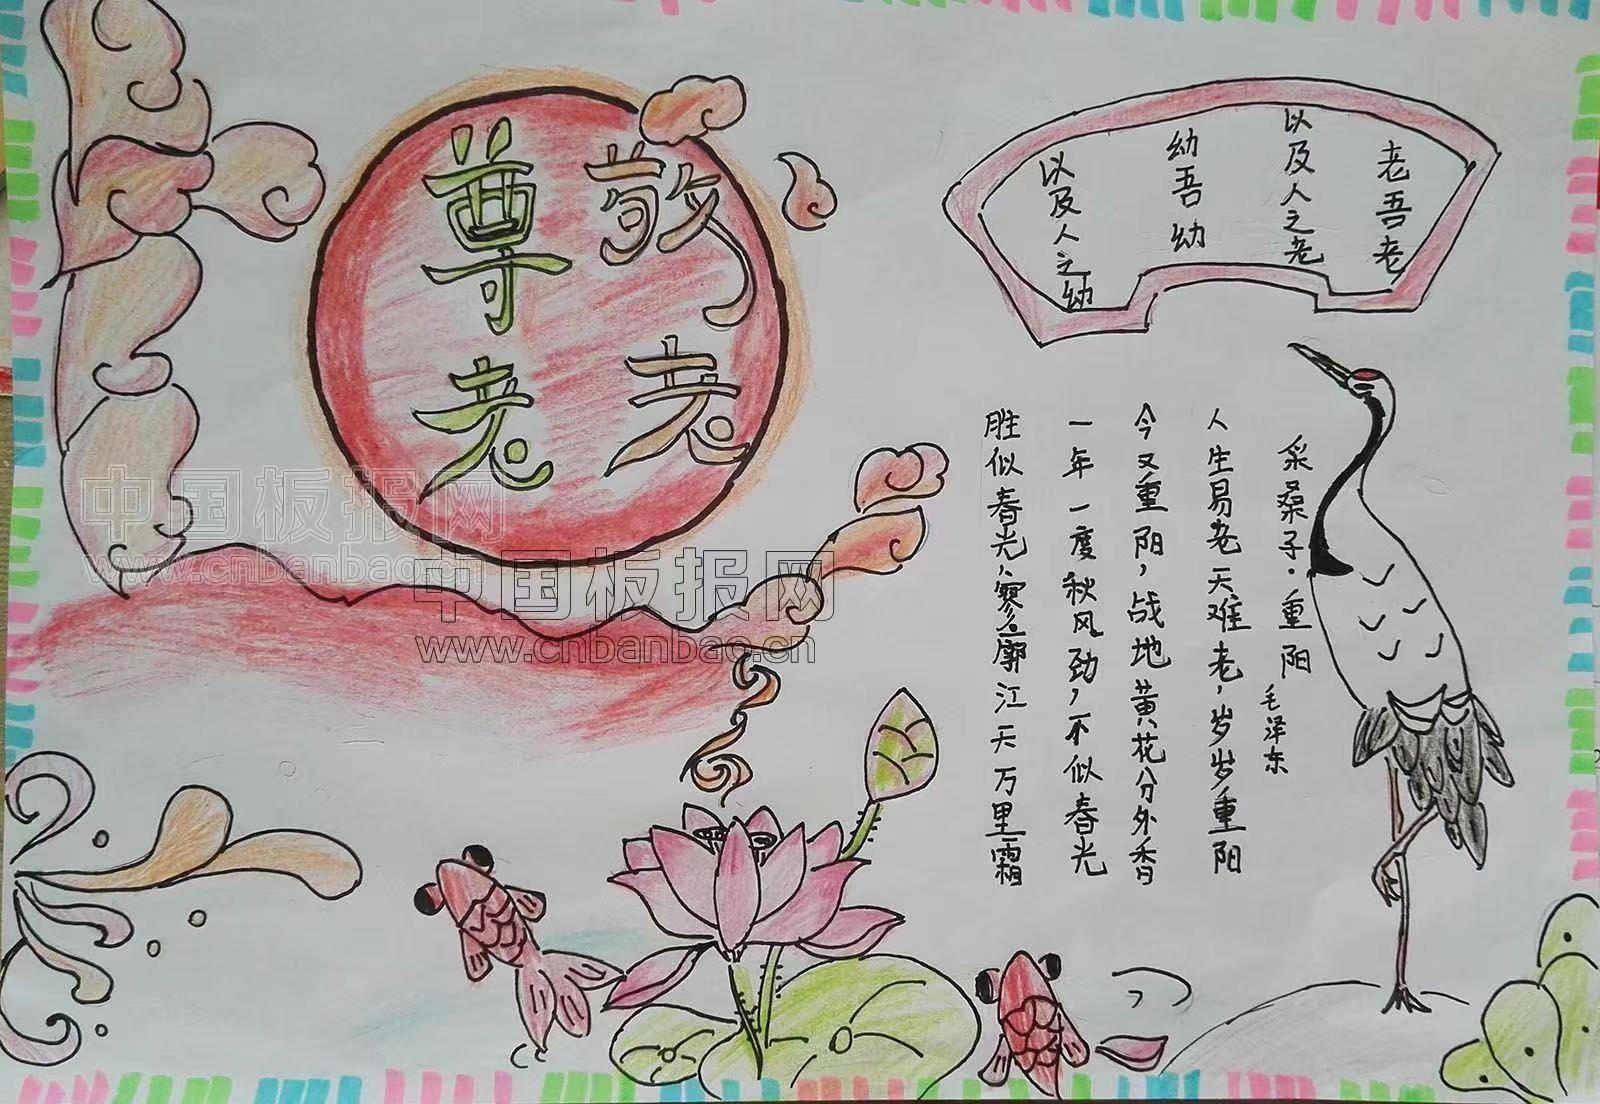 尊老
敬老
老吾老
以及人之老
幼吾幼
以及人之幼
采桑子·重阳
毛泽东
人生易老天难老,岁岁重阳
今又重阳,战地黄花分外香
一年一度秋风劲,不似春光
胜似春光,寥廓江天万里霜
中国板报网
www.cnbanbao.cn
中国板报网
www.cnbanbao.cn